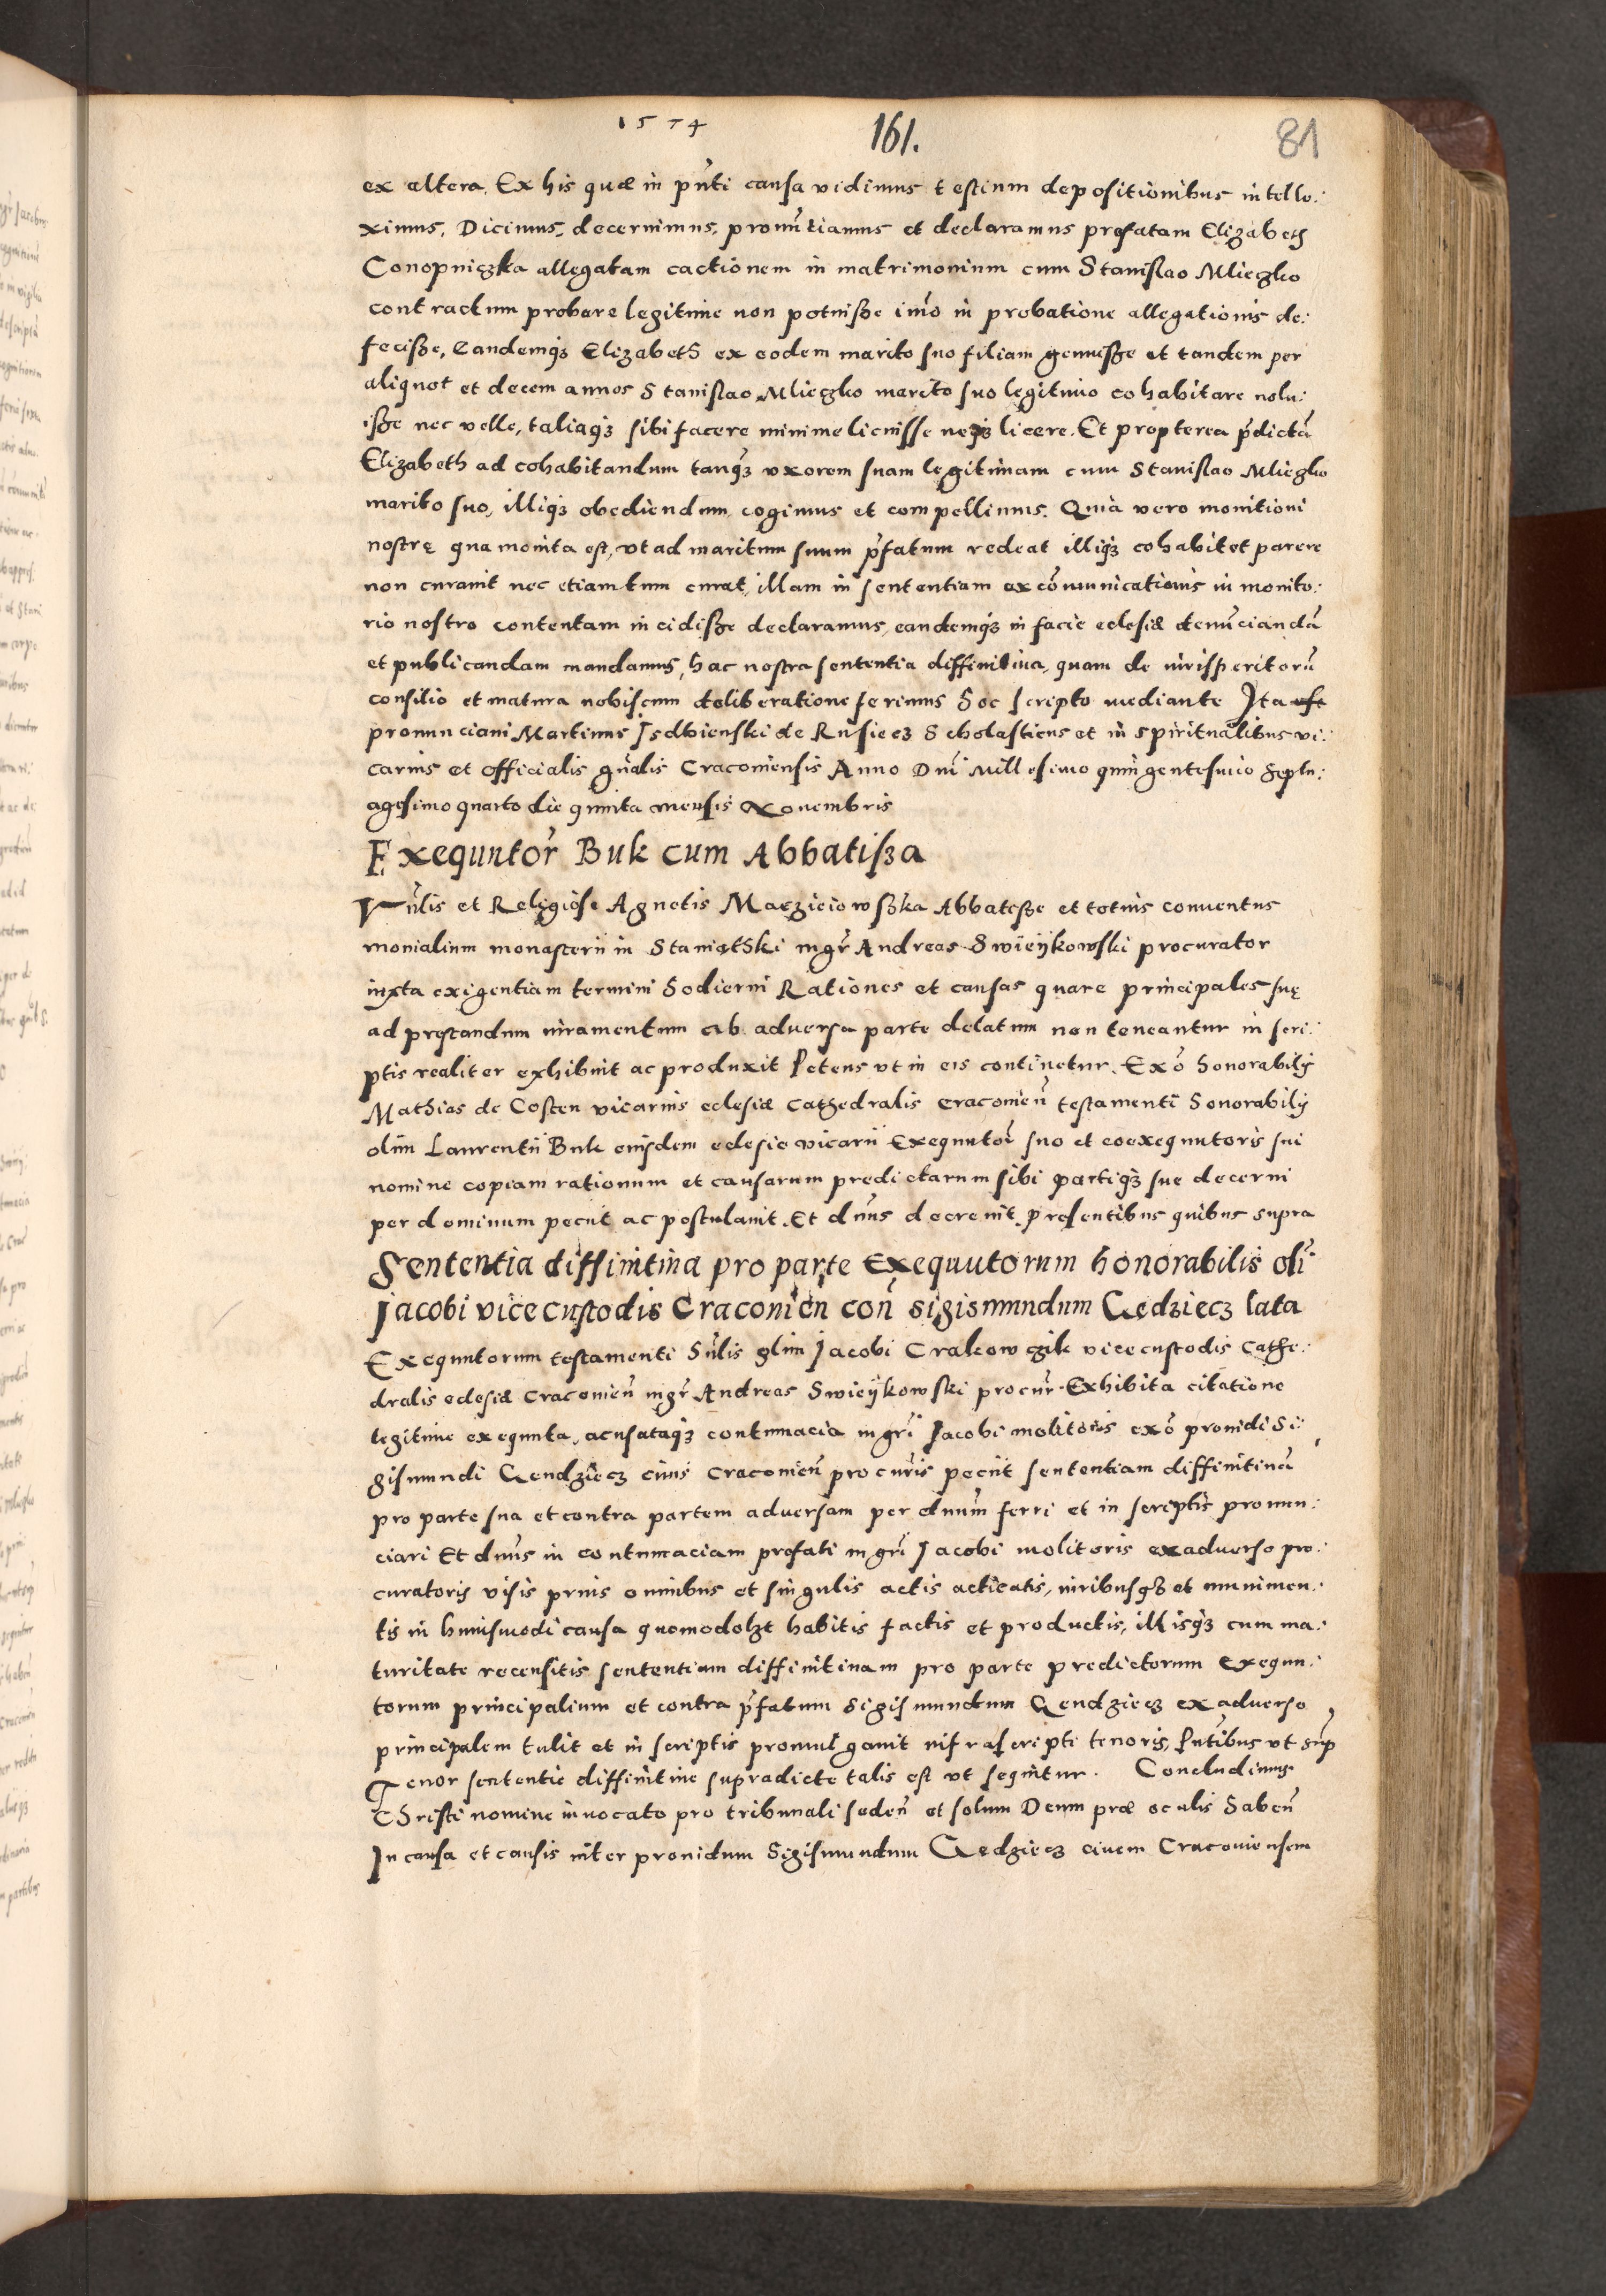 1574
161.
81
ex altera. Ex his quæ in pñti causa vidimus testium depositionibus intelle:
ximus, Dicimus, decernimus, pronũtiamus et declaramus prefatam Elizabeth
Conopniczka allegatam coactionem in matrimonium cum Stanislao Mlieczko
contractum probare legitime non potuisse imõ in probatione allegationis de:
fecisse, Eandemq3 Elizabeth ex eodem marito suo filiam genuisse et tandem per
aliquot et decem annos Stanislao Mlieczko marito suo legitimo cohabitare nolu:
isse nec velle, taliaq3 sibi facere minime licuisse neq3 licere. Et propterea p̃dictã
Elizabeth ad cohabitandum tanq3 vxorem suam legitimam cum Stanislao Mlieczko
marito suo, illiq3 obediendum cogimus et compellimus. Quia vero monitioni
nostrę qua monita est, vt ad maritum suum p̃fatum redeat illiq3 cohabitet parere
non curauit nec etiamtum curat, illam in sententiam excõmunicationis in monito:
rio nostro contentam incidisse declaramus, eandemq3 in facie eclesiæ denũciandã
et publicandam mandamus, hac nostra sententia diffinitiua, quam de iurisperitorũ
consilio et matura nobiscum deliberatione ferimus hoc scripto mediante Ita est
pronunciaui Martinus Isdbienski de Rusiecz Scholasticus et in spiritualibus vi:
carius et officialis gñalis Cracouiensis Anno Dnĩ Millesimo quingentesimo septu:
agesimo quarto die quinta mensis Nouembris
Exequutor̃ Buk cum Abbatissa
Nñlis et Religiose Agnetis Macziciowszka Abbatisse et totius conuentus
monialium monasterii in Staniąthki mgr̃ Andreas Swieÿkowski procurator
iuxta exigentiam termini hodierni Rationes et causas quare principales suę
ad prestandum iuramentum ab aduersa parte delatum non teneantur in scri:
ptis realiter exhibuit ac produxit Petens vt in eis continetur. Exõ honorabilÿ
Mathias de Costen vicarius eclesiæ Cathedralis cracouieñ testamenti honorabilÿ
olim Laurentii Buk eiusdem eclesie vicarii Exequutor̃ suo et coexequutoris sui
nomine copiam rationum et causarum predictarum sibi partiq3 sue decerni
per dominum peciit ac postulauit. Et dñus decreuit. presentibus quibus supra
Sententia diffinitiua pro parte Exequutorum honorabilis olĩ
Jacobi vicecustodis Cracouieñ coñ Sigismundum Gedziecz lata
Exequutorum testamenti hñlis olim Jacobi Crakowczik vicecustodis Cathe:
dralis eclesiæ Cracouieñ mgr̃ Andreas Swieÿkowski procur̃. Exhibita citatione
legitime exequuta, acusataq3 contumacia mgr̃i Jacobi molitoris exõ prouidi Si:
gismundi Gendziecz ciuis Cracouieñ procur̃is peciit sententiam diffinitiuã
pro parte sua et contra partem aduersam per dnũm ferri et in scriptis pronun:
ciari Et dñus in contumaciam prefati mgr̃i Jacobi molitoris ex aduerso pro:
curatoris visis prius omnibus et singulis actis acticatis, iuribusq3 et munimen:
tis in huiusmodi causa quomodolzt habitis factis et productis, illisq3 cum ma:
turitate recensitis sententiam diffinitiuam pro parte predictorum exequu:
torum principalium et contra p̃fatum Sigismundum Gendziecz ex aduerso
principalem tulit et in scriptis promulgauit infrascripti tenoris, Pñtibus vt sup̃
Tenor sententie diffinitiue supradicte talis est vt sequitur. Concludimus
Christi nomine inuocato pro tribunali sedeñ et solum Deum præ oculis habeñ
In causa et causis inter prouidum Sigismundum Gedziecz ciuem Cracouiensem